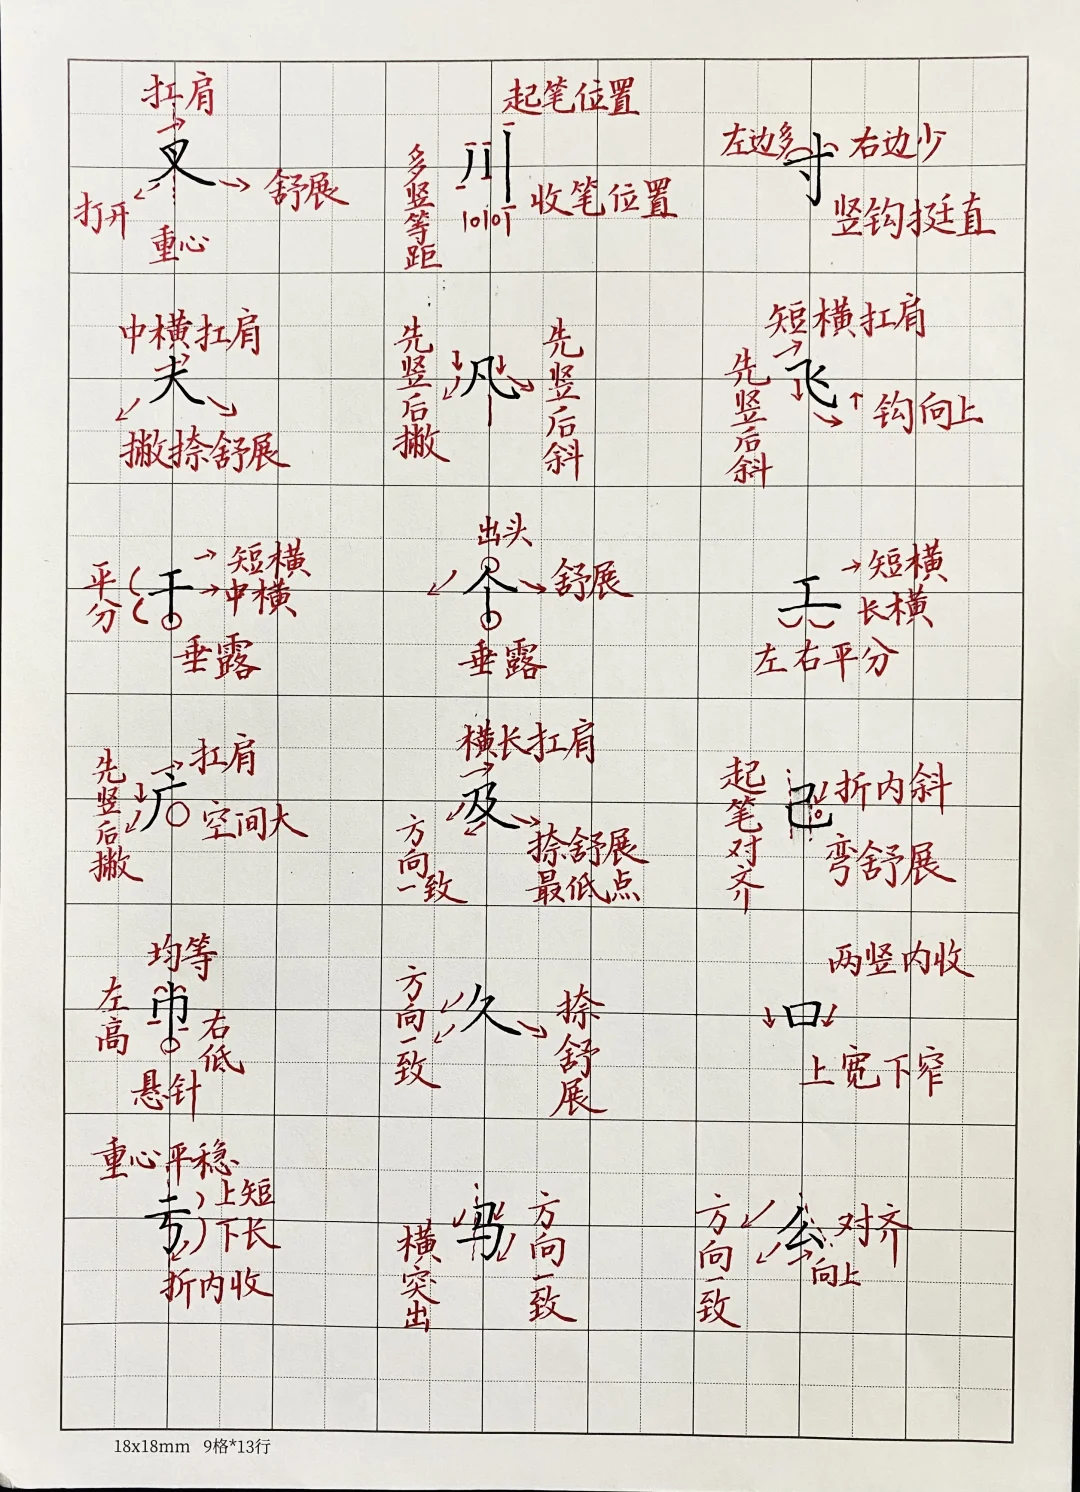 扛肩
叉
打开
舒展
重心
起笔位置
多竖等距
川
收笔位置
左边多
寸
右边少
竖钩挺直
中横扛肩
夫
撇捺舒展
先竖后撇
凡
先竖后斜
短横扛肩
先竖后斜
飞
钩向上
平分
干
短横
中横
垂露
出头
个
舒展
垂露
工
短横
长横
左右平分
先竖后撇
广
扛肩
空间大
横长扛肩
及
方向一致
捺舒展
最低点
起笔对齐
己
折内斜
弯舒展
均等
左高
巾
右低
悬针
方向一致
久
捺舒展
两竖内收
口
上宽下窄
重心平稳
亏
上短
下长
折内收
横突出
马
方向一致
方向一致
么
对齐
向上
18x18mm 9格*13行